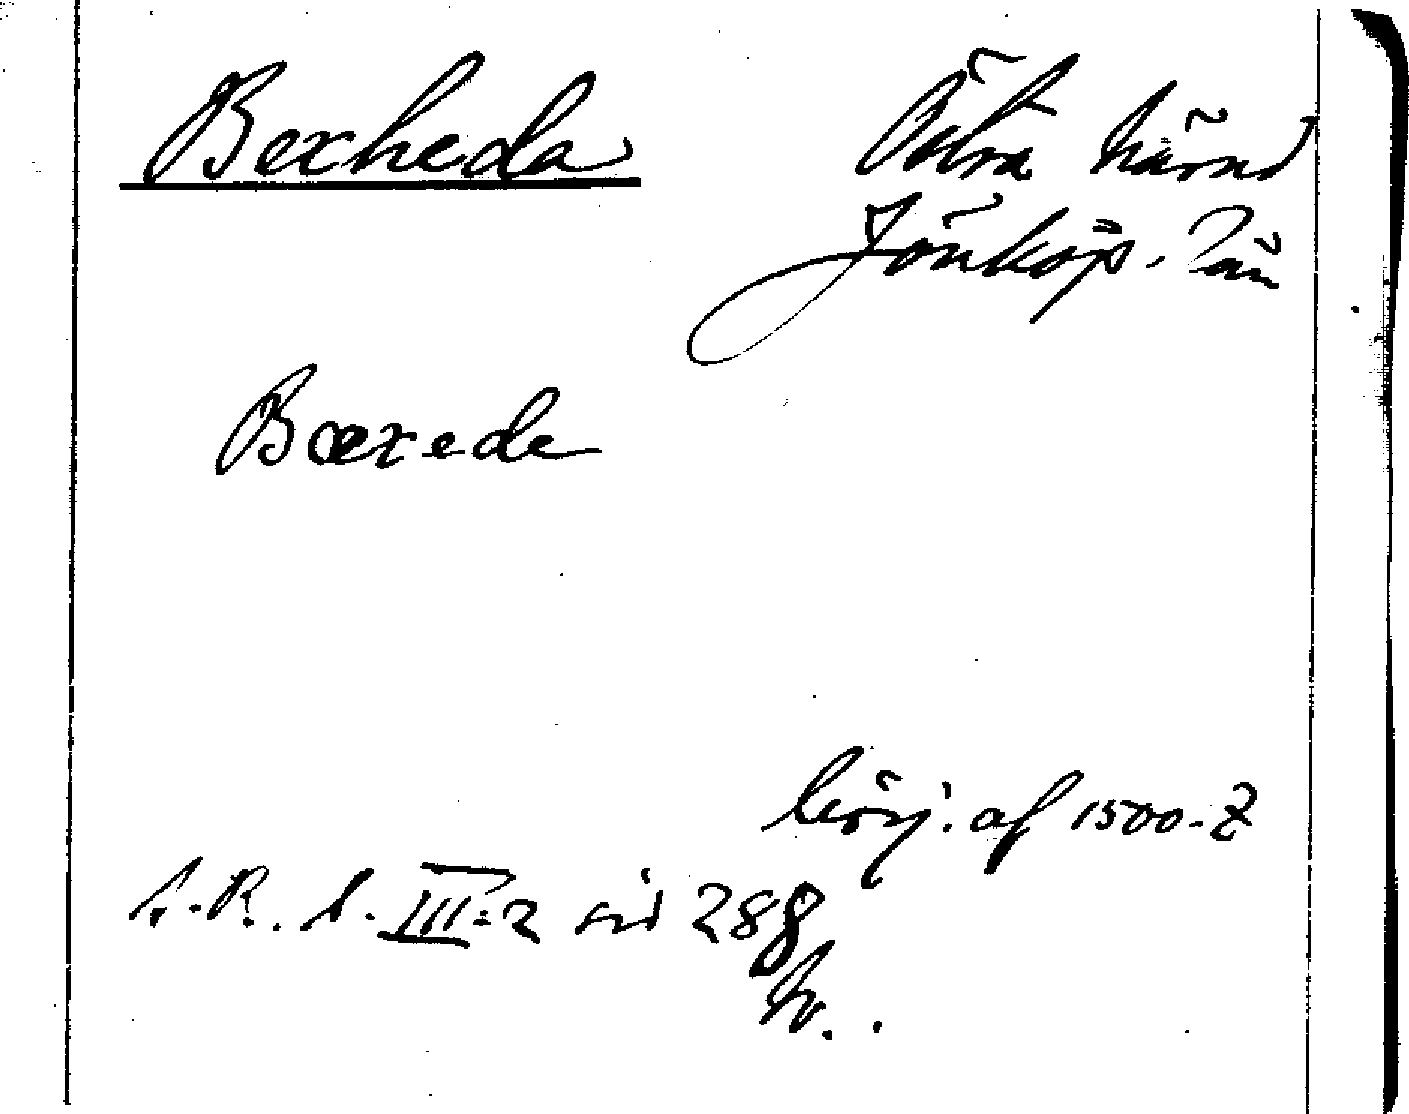 Bexheda
Östra härad
Jönköp. län
Bæxede
börj. af 1500-t
S.R. S. III:2 sid 288